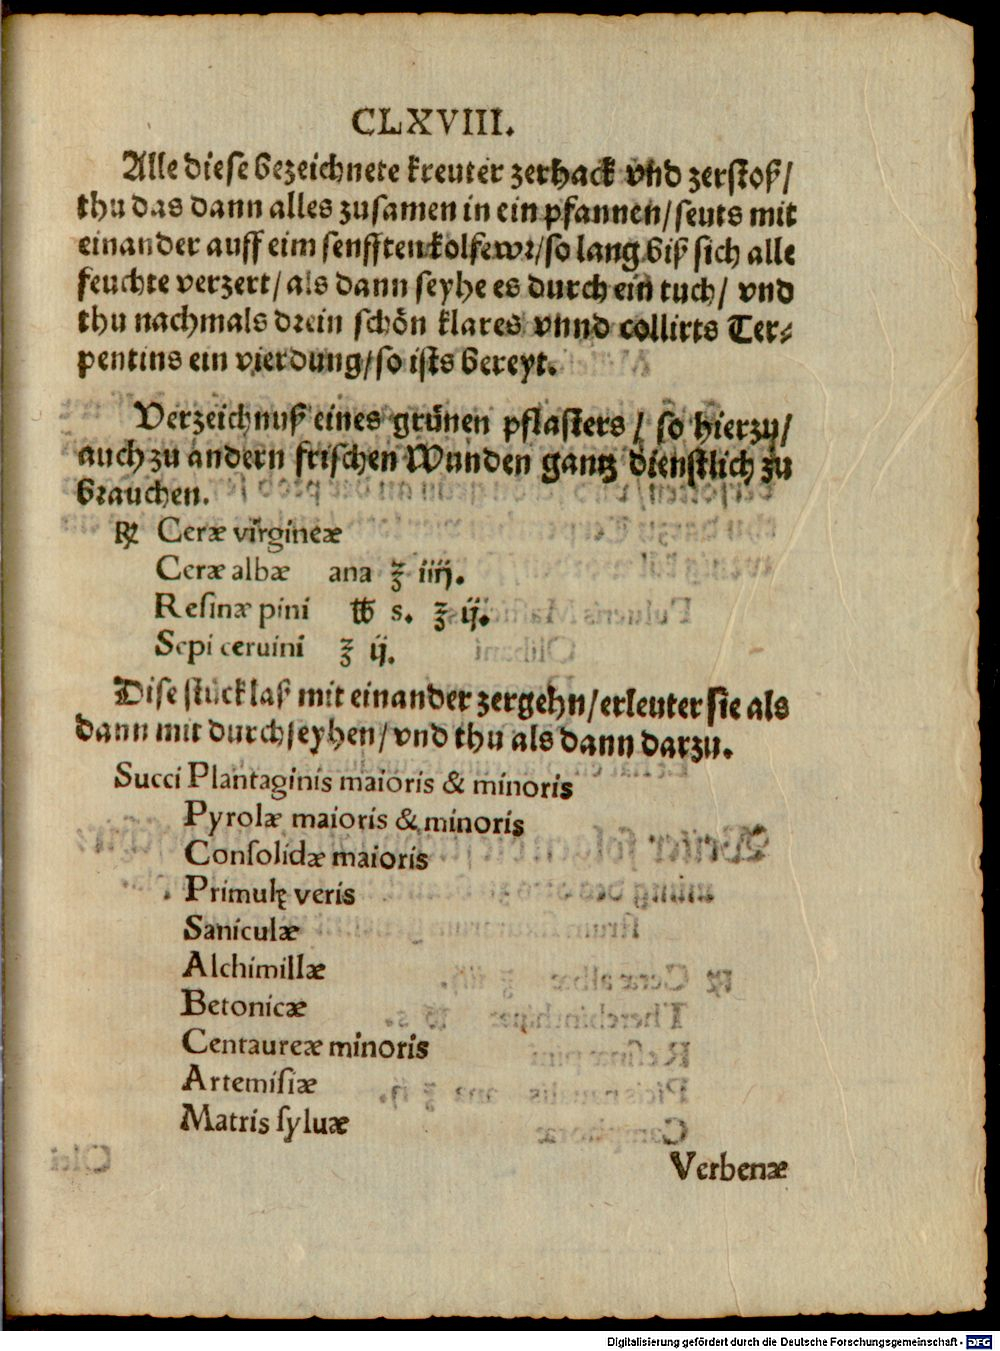 CLXVIII.
Alle diese bezeichnete kreuter zerhack vnd zerstoß/
thu das dann alles zusamen in ein pfannen/seuts mit
einander auff eim senfften kolfewr/so lang biß sich alle
feuchte verzert/als dann seyhe es durch ein tuch/ vnd
thu nachmals drein schön klares vnnd collirts Ter⸗
pentins ein vierdung/so ists bereyt.
Verzeichnuß eines grünen pflasters/ so hierzu/
auch zu andern frischen Wunden gantz dienstlich zu
brauchen.
℞ Ceræ virgineæ
Ceræ albæ ana ℥ iiij.
Resinæ pini ℔ s. ℥ ij.
Sepi ceruini ℥ ij.
Dise stück laß mit einander zergehn/erleuter sie als
dann mit durchseyhen/vnd thu als dann darzu.
Succi Plantaginis maioris & minoris
Pyrolæ maioris & minoris
Consolidæ maioris
Primulę veris
Saniculæ
Alchimillæ
Betonicæ
Centaureæ minoris
Artemisiæ
Matris syluæ
Verbenæ
Digitalisierung gefördert durch die Deutsche Forschungsgemeinschaft - DFG